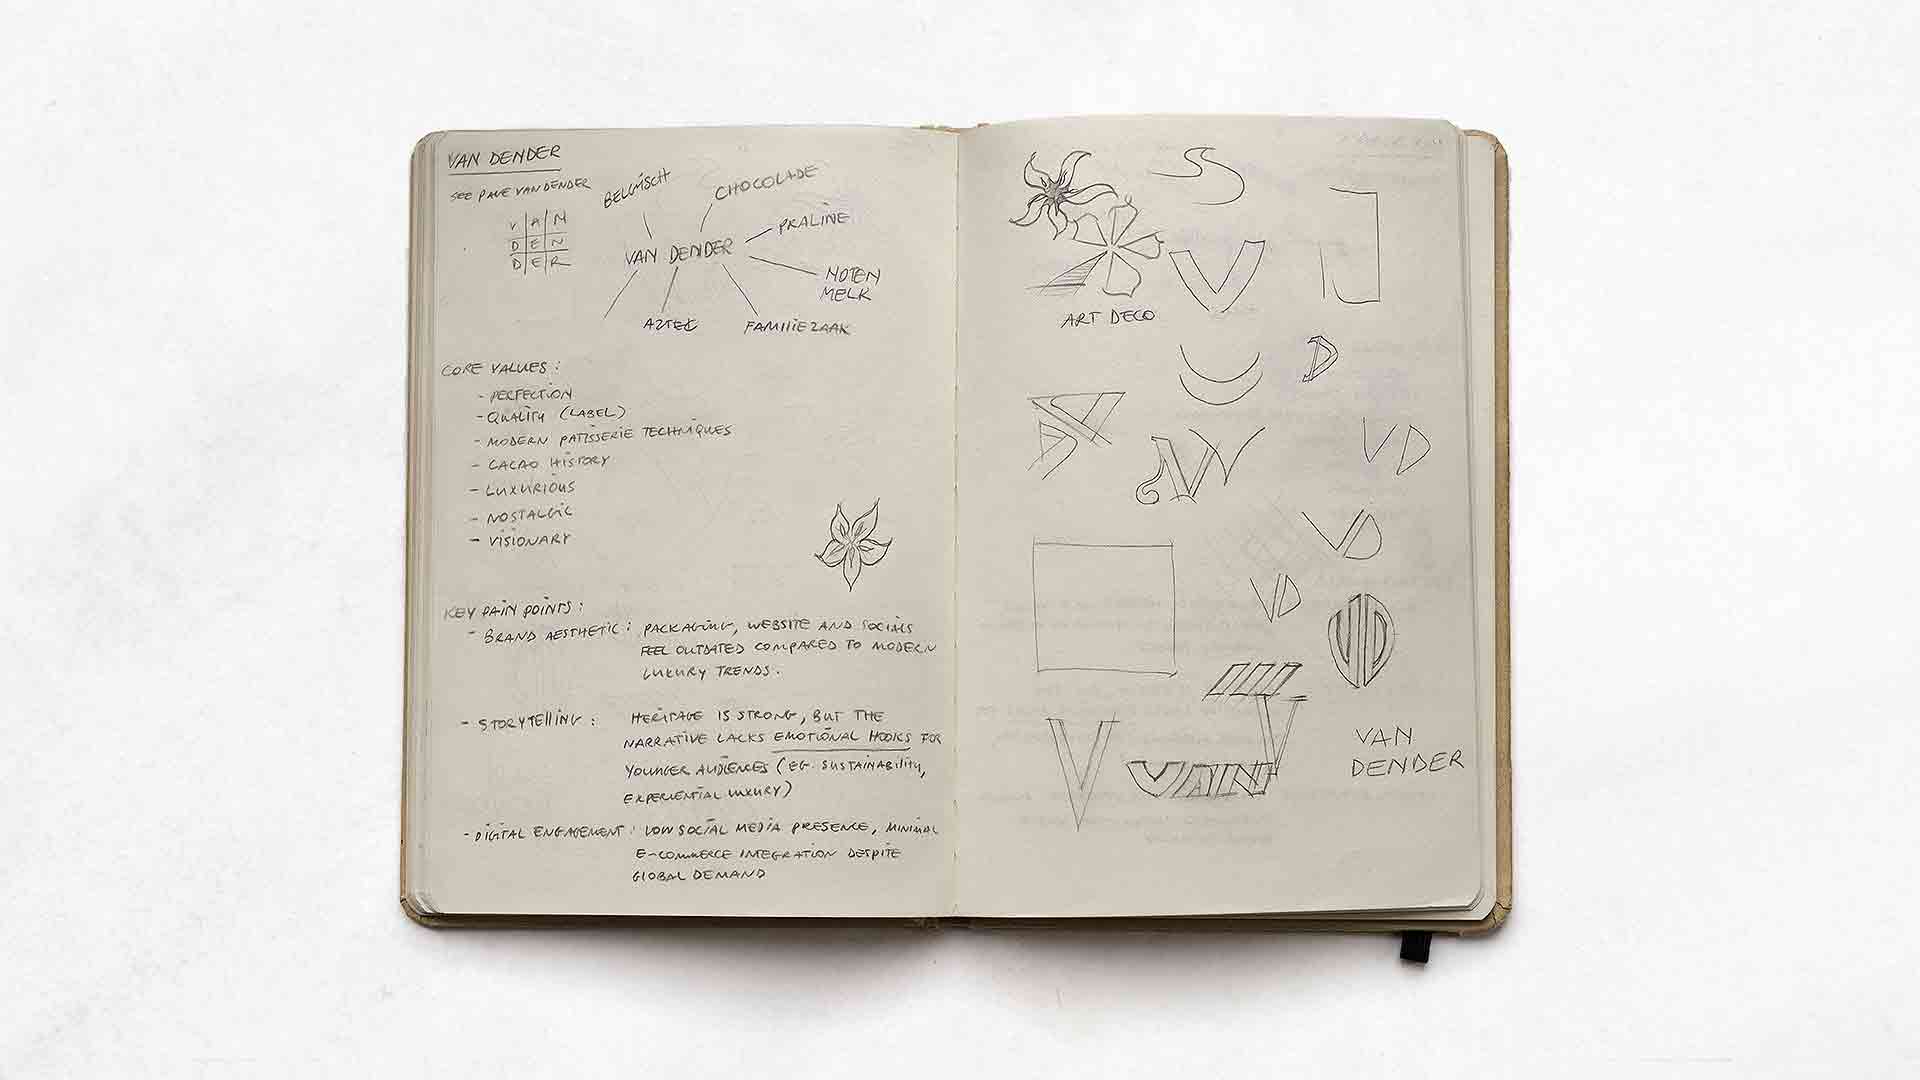 VAN DENDER
VAN DENDER
V A N
D E N
D E R
BELGISCH
CHOCOLADE
PRALINE
VAN DENDER
NOTEN
MELK
AZTEK
FAMILIEZAAK
CORE VALUES:
- PERFECTION
- QUALITY (LABEL)
- MODERN PATISSERIE TECHNIQUES
- CACAO HISTORY
- LUXURIOUS
- NOSTALGIC
- VISIONARY
KEY PAIN POINTS:
- BRAND AESTHETIC: PACKAGING, WEBSITE AND SOCIALS
FEEL OUTDATED COMPARED TO MODERN
LUXURY TRENDS.
- STORYTELLING: HERITAGE IS STRONG, BUT THE
NARRATIVE LACKS EMOTIONAL HOOKS FOR
YOUNGER AUDIENCES (EG. SUSTAINABILITY,
EXPERIENTIAL LUXURY)
- DIGITAL ENGAGEMENT: LOW SOCIAL MEDIA PRESENCE, MINIMAL
E-COMMERCE INTEGRATION DESPITE
GLOBAL DEMAND
V
ART DECO
D
VD
VD
VD
VD
V
VAN
VAN
DENDER